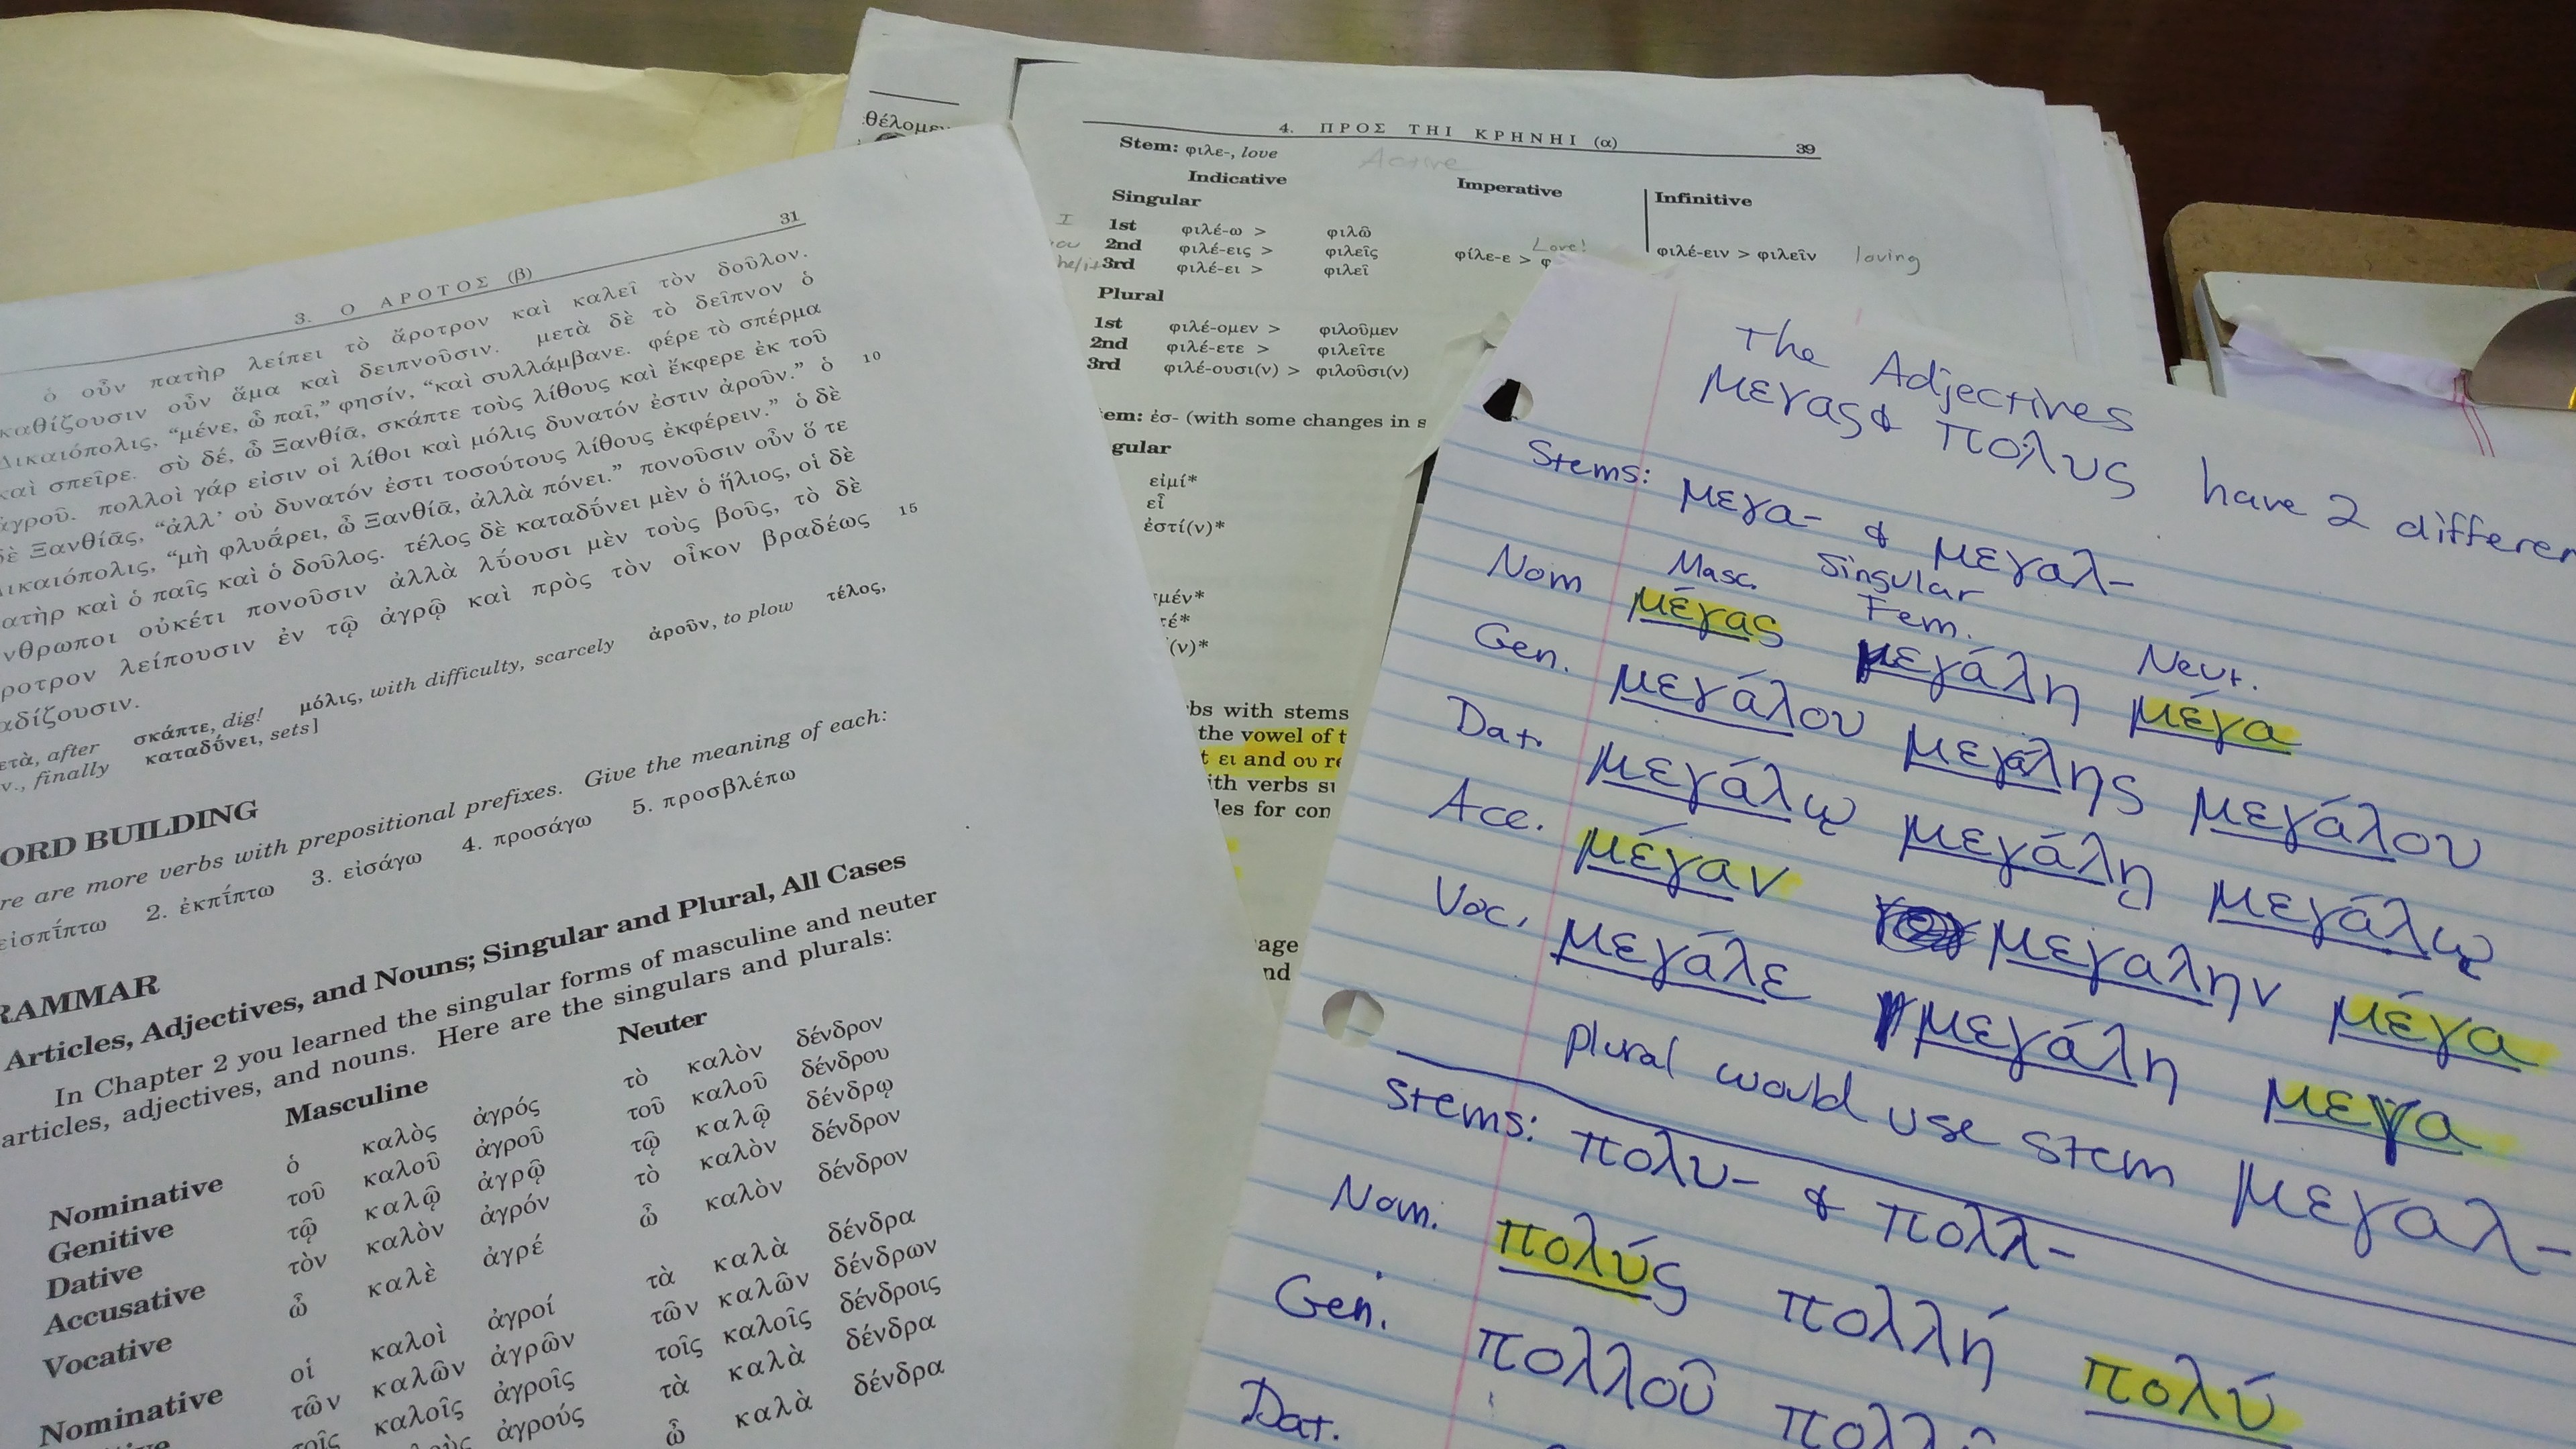 31
3. Ο ΑΡΟΤΟΣ (β)
ὁ οὖν πατὴρ λείπει τὸ ἄροτρον καὶ καλεῖ τὸν δοῦλον.
καθίζουσιν οὖν ἅμα καὶ δειπνοῦσιν. μετὰ δὲ τὸ δεῖπνον ὁ
Δικαιόπολις, “μένε, ὦ παῖ,” φησίν, “καὶ συλλάμβανε. φέρε τὸ σπέρμα
καὶ σπεῖρε. σὺ δέ, ὦ Ξανθίᾱ, σκάπτε τοὺς λίθους καὶ ἔκφερε ἐκ τοῦ
ἀγροῦ. πολλοὶ γάρ εἰσιν οἱ λίθοι καὶ μόλις δυνατόν ἐστιν ἀροῦν.” ὁ 10
δὲ Ξανθίᾱς, “ἀλλ’ οὐ δυνατόν ἐστι τοσούτους λίθους ἐκφέρειν.” ὁ δὲ
Δικαιόπολις, “μὴ φλυᾱ́ρει, ὦ Ξανθίᾱ, ἀλλὰ πόνει.” πονοῦσιν οὖν ὅ τε
πατὴρ καὶ ὁ παῖς καὶ ὁ δοῦλος. τέλος δὲ καταδῡ́νει μὲν ὁ ἥλιος, οἱ δὲ
νθρωποι οὐκέτι πονοῦσιν ἀλλὰ λῡ́ουσι μὲν τοὺς βοῦς, τὸ δὲ
ροτρον λείπουσιν ἐν τῷ ἀγρῷ καὶ πρὸς τὸν οἶκον βραδέως 15
αδίζουσιν.
ετὰ, after σκάπτε, dig! μόλις, with difficulty, scarcely ἀροῦν, to plow τέλος,
v., finally καταδῡ́νει, sets]
ORD BUILDING
re are more verbs with prepositional prefixes. Give the meaning of each:
εἰσπῑ́πτω 2. ἐκπῑ́πτω 3. εἰσάγω 4. προσάγω 5. προσβλέπω
RAMMAR
Articles, Adjectives, and Nouns; Singular and Plural, All Cases
In Chapter 2 you learned the singular forms of masculine and neuter
articles, adjectives, and nouns. Here are the singulars and plurals:
Masculine Neuter
Nominative ὁ καλὸς ἀγρός τὸ καλὸν δένδρον
Genitive τοῦ καλοῦ ἀγροῦ τοῦ καλοῦ δένδρου
Dative τῷ καλῷ ἀγρῷ τῷ καλῷ δένδρῳ
Accusative τὸν καλὸν ἀγρόν τὸ καλὸν δένδρον
Vocative ὦ καλὲ ἀγρέ ὦ καλὸν δένδρον
Nominative οἱ καλοὶ ἀγροί τὰ καλὰ δένδρα
τῶν καλῶν ἀγρῶν τῶν καλῶν δένδρων
τοῖς καλοῖς ἀγροῖς τοῖς καλοῖς δένδροις
ἀγρούς τὰ καλὰ δένδρα
ὦ καλὰ δένδρα
θέλομεν
4. ΠΡΟΣ ΤΗΙ ΚΡΗΝΗΙ (α) 39
Stem: φιλε-, love Active
Indicative Imperative Infinitive
Singular
I 1st φιλέ-ω > φιλῶ
2nd φιλέ-εις > φιλεῖς φίλε-ε > φ Love! φιλέ-ειν > φιλεῖν loving
he/it 3rd φιλέ-ει > φιλεῖ
Plural
1st φιλέ-ομεν > φιλοῦμεν
2nd φιλέ-ετε > φιλεῖτε
3rd φιλέ-ουσι(ν) > φιλοῦσι(ν)
em: ἐσ- (with some changes in s
gular
εἰμί*
εἶ
ἐστί(ν)*
μέν*
τέ*
(ν)*
bs with stems
the vowel of t
t ει and ου re
ith verbs su
les for con
age
nd
The Adjectives
μεγας & πολυς have 2 differen
Stems: μεγα- & μεγαλ-
Singular
Masc. Fem. Neut.
Nom μέγας μεγάλη μέγα
Gen. μεγάλου μεγάλης μεγάλου
Dat. μεγάλῳ μεγάλῃ μεγάλῳ
Acc. μέγαν μεγαλην μέγα
Voc. μεγάλε μεγάλη μεγα
plural would use stem μεγαλ-
Stems: πολυ- & πολλ-
Nom. πολύς πολλή πολύ
Gen. πολλοῦ
Dat.